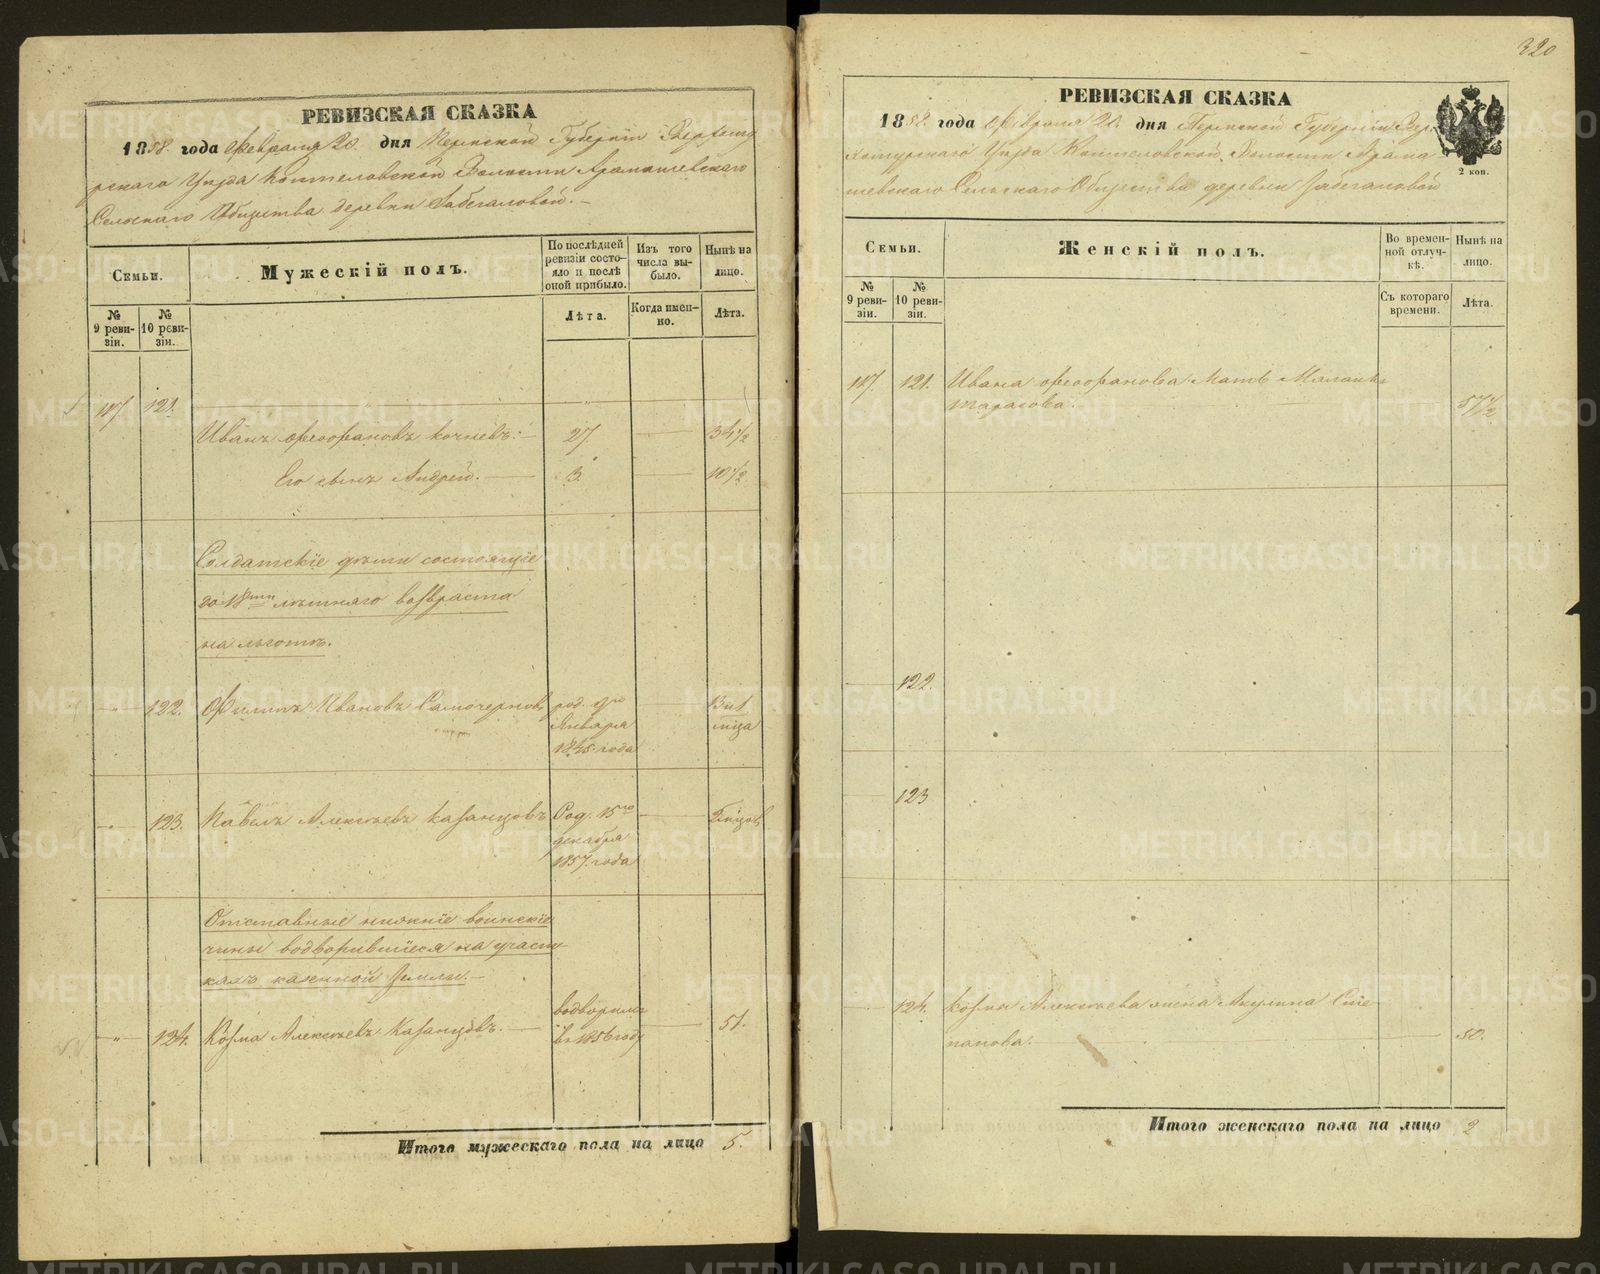 РЕВИЗСКАЯ СКАЗКА
1858 года Февраля 20 дня Пермской Губерніи Верхоту
рскаго Уѣзда Коптеловской Волости Арамашевскаго
Сельскаго Общества деревни Забегаловой.
Семьи.
Мужескій полъ.
По послѣдней ревизіи состо-
яло и послѣ оной прибыло.
Изъ того числа вы-
было.
Нынѣ на лицо.
№ 9 реви-
зіи.
№ 10 реви-
зіи.
Лѣта.
Когда имен-
но.
Лѣта.
117. 121.
Иванъ Феофановъ Кочневъ. 27 34 1/2
Его сынъ Андрей. 3. 10 1/2
Солдатскіе дѣти состоящіе
до 18ти лѣтняго возраста
на льготѣ.
" 122. Филипъ Ивановъ Самочерновъ род.
Января
1845 года
13 и 1
мѣца
" 123. Павелъ Алексѣевъ Казанцовъ Род. 15го
декабря
1857 года
2 мѣцов
Отставные нижніе воинскіе
чины водворившіеся на участ-
кахъ казенной Земли.
" 124. Козма Алексѣевъ Казанцовъ.
водворили
въ 1856 году
51.
Итого мужескаго пола на лицо 5.
320
РЕВИЗСКАЯ СКАЗКА
1858 года Февраля 20 дня Пермской Губерніи Вер-
хотурскаго Уѣзда Коптеловской Волости Арама
шевскаго Сельскаго Общества деревни Забегаловой
2 коп.
Семьи.
Женскій полъ.
Во времен-
ной отлуч-
кѣ.
Нынѣ на лицо.
№ 9 реви-
зіи.
№ 10 реви-
зіи.
Съ котораго времени.
Лѣта.
117. 121. Ивана Феофанова Мать Маланья
Тарасова. 57 1/2
122.
123
124. Козмы Алексѣева жена Акулина Сте
панова. 50.
Итого женскаго пола на лицо 2
METRIKI.GASO-URAL.RU